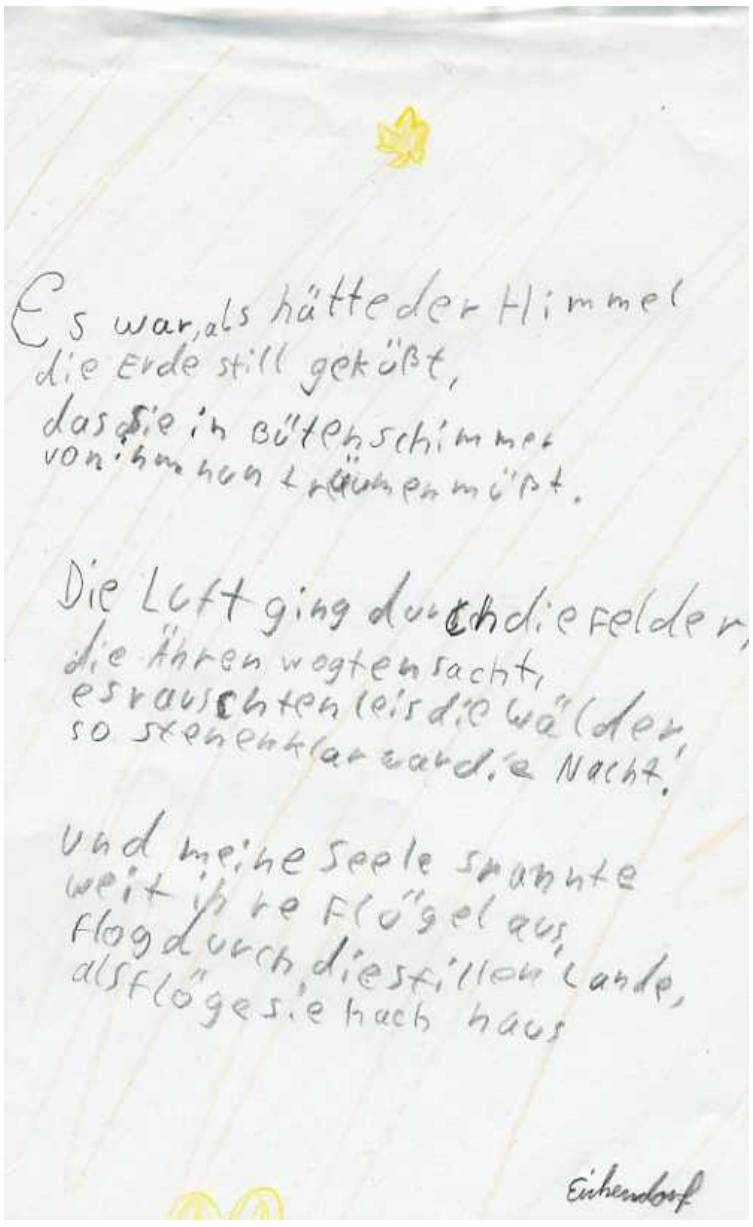 Es war, als hätte der Himmel
die Erde still geküßt,
das sie in Bütenschimmer
von ihm nun träumen müßt.
Die Luft ging durch die Felder,
die Ähren wogten sacht,
es rauschten leis die Wälder,
so stenenklar war die Nacht.
und meine Seele spannte
weit ihre Flügel aus,
Flog durch die stillen Lande,
als flöge sie nach haus
Eichendorf